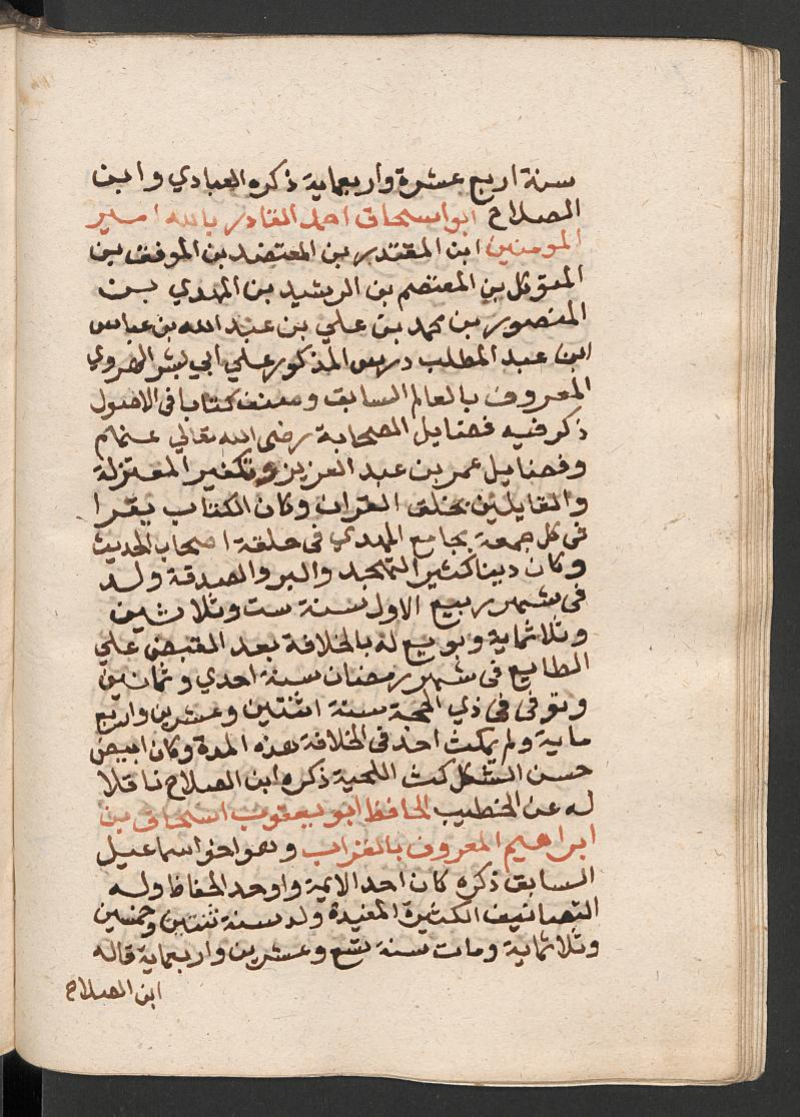 سنة اربع عشرة واربعماية ذكره العبادي وابن
الصلاح ابواسحاق احمد القادر بالله امير
المومنين ابن المقتدر بن المعتضد بن الموفق بن
المتوكل بن المعتصم بن الرشيد بن المهدي بن
المنصور بن محمد بن علي بن عبد الله بن عباس
ابن عبد المطلب درس المذكور علي ابي بشر الهروي
المعروف بالعالم السابق وصنف كتابا في الاصول
ذكر فيه فضايل الصحابة رضى الله تعالي عنهم
وفضايل عمر بن عبد العزيز وتكفير المعتزلة
والقايلين بخلق القران وكان الكتاب يقرا
في كل جمعة بجامع المهدي في حلقة اصحاب الحديث
وكان دينا كثير التهجد والبر والصدقة ولد
في شهر ربيع الاول سنة ست وثلاثين
وثلاثماية وبويع له بالخلافة بعد القبض علي
الطايع في شهر رمضان سنة احدي وثمانين
وتوفي في ذي الحجة سنة اثنتين وعشرين واربع
ماية ولم يمكث احد في الخلافة هذه المدة وكان ابيض
حسن الشكل كث اللحية ذكره ابن الصلاح ناقلا
له عن الخطيب الحافظ ابو يعقوب اسحاق بن
ابراهيم المعروف بالقراب وهو اخو اسماعيل
السابق ذكره كان احد الايمة واوحد الحفاظ وله
التصانيف الكثيرة المفيدة ولد سنة ثنتين وخمسين
وثلاثماية ومات سنة تسع وعشرين واربعماية قاله
ابن الصلاح